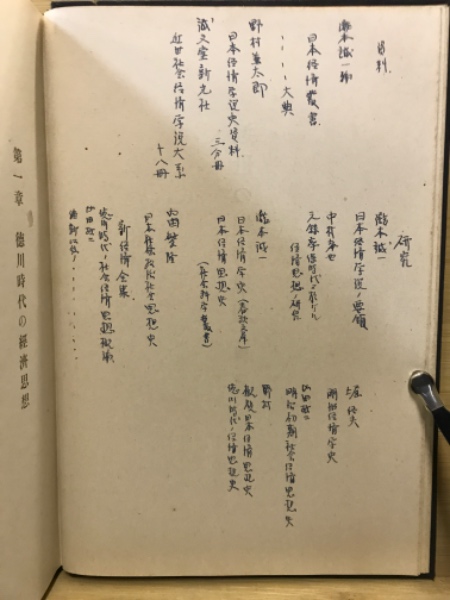 資料
瀧本誠一編
日本経済叢書
〃〃〃〃大典
野村兼太郎
日本経済学説史資料 三分冊
誠文堂新光社
近世社会経済学説大系 十八冊
研究
瀧本誠一
日本経済学説ノ要領
中村孝也
元禄享保時代ニ於ケル
経済思想ノ研究
瀧本誠一
日本経済学史
日本経済思想史
(社会科学叢書)
日本社会思想史
新経済全集
徳川時代ノ社会経済思想概論
堀経夫
明治経済学史
明治初期社会経済思想史
野村
概観日本経済思想史
徳川時代ノ経済思想史
第一章 徳川時代の經濟思想